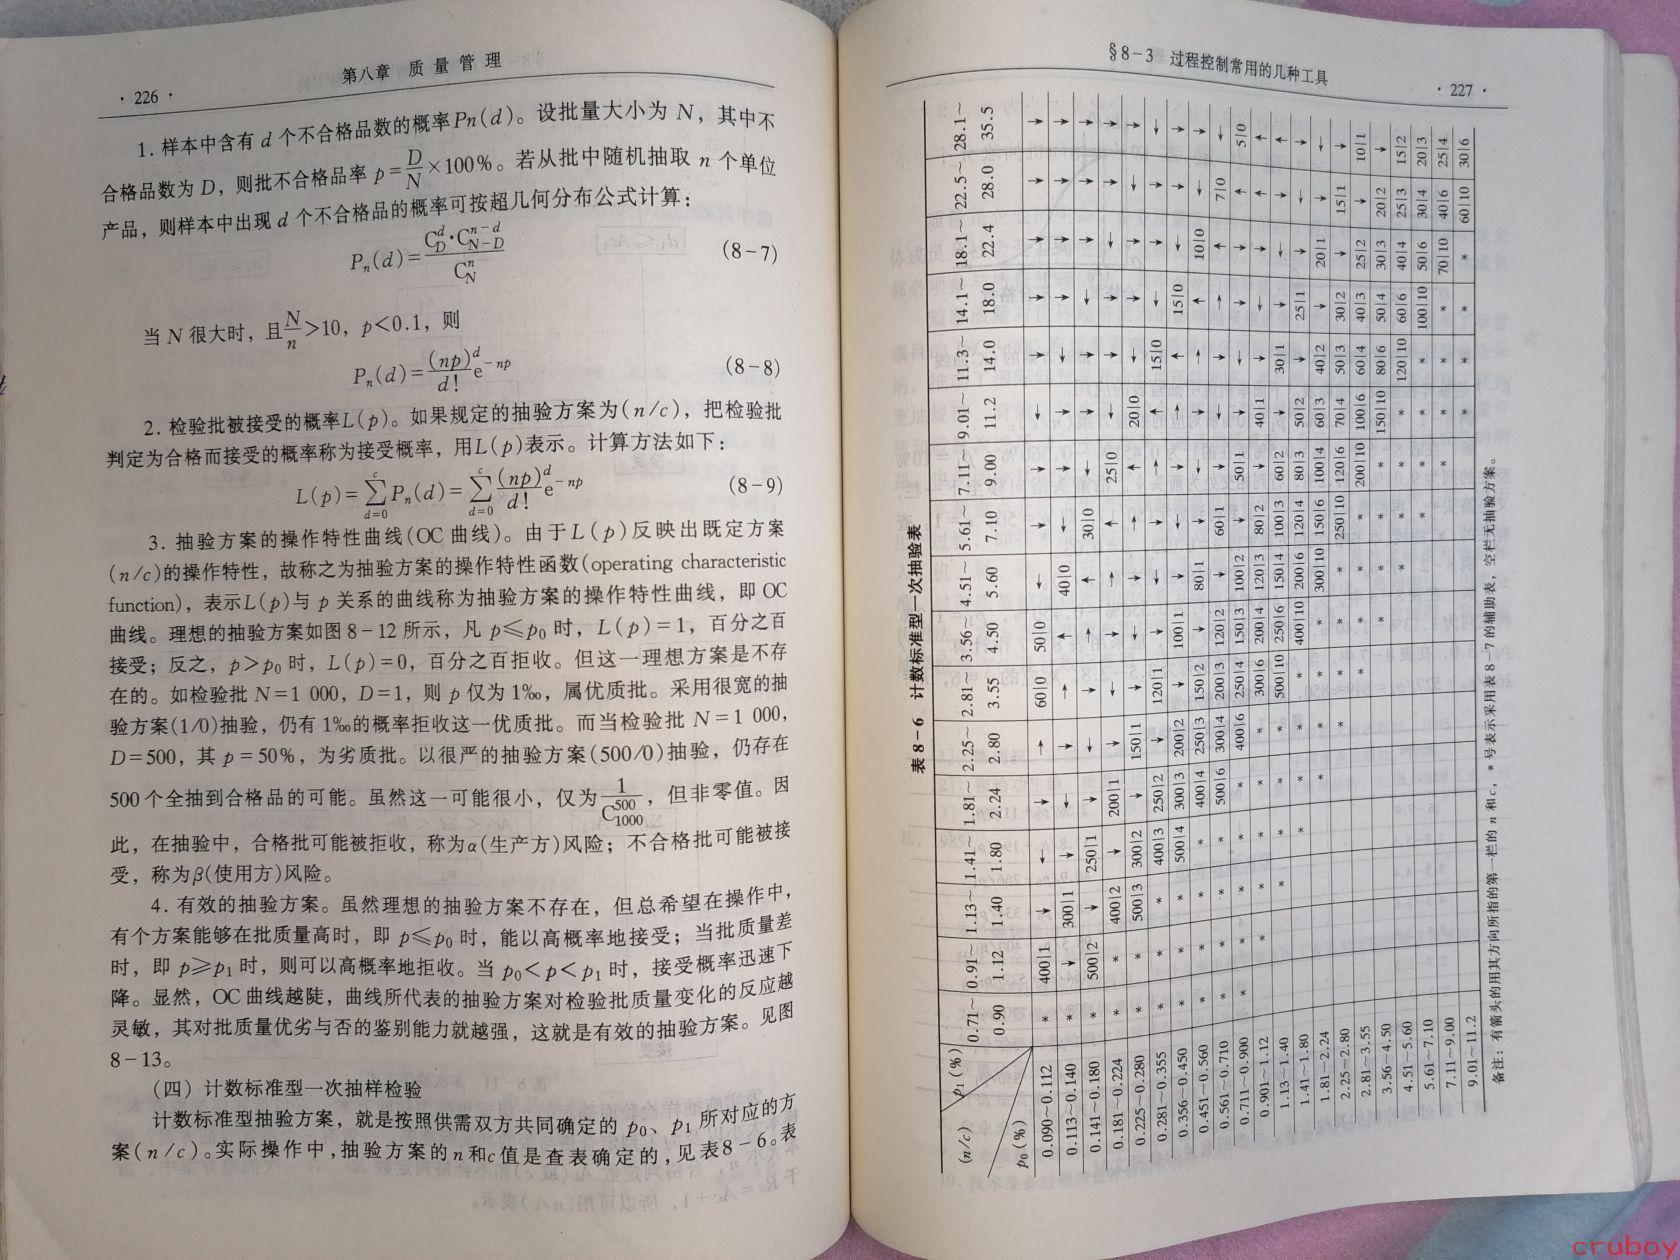 第八章 质量管理
· 226 ·
1. 样本中含有 d 个不合格品数的概率Pn(d)。设批量大小为 N，其中不
合格品数为 D，则批不合格品率 p=D/N×100%。若从批中随机抽取 n 个单位
产品，则样本中出现 d 个不合格品的概率可按超几何分布公式计算：
Pₙ(d)=C_D^d·C_{N-D}^{n-d}/C_N^n (8-7)
当 N 很大时，且N/n>10，p<0.1，则
Pₙ(d)=(np)^d/d! e^{-np} (8-8)
2. 检验批被接受的概率L(p)。如果规定的抽验方案为(n/c)，把检验批
判定为合格而接受的概率称为接受概率，用L(p)表示。计算方法如下：
L(p)=∑_{d=0}^{c}Pₙ(d)=∑_{d=0}^{c}(np)^d/d! e^{-np} (8-9)
3. 抽验方案的操作特性曲线(OC 曲线)。由于L(p)反映出既定方案
(n/c)的操作特性，故称之为抽验方案的操作特性函数(operating characteristic
function)，表示L(p)与 p 关系的曲线称为抽验方案的操作特性曲线，即 OC
曲线。理想的抽验方案如图8-12所示，凡 p≤p₀ 时，L(p)=1，百分之百
接受；反之，p>p₀ 时，L(p)=0，百分之百拒收。但这一理想方案是不存
在的。如检验批 N=1 000，D=1，则 p 仅为 1‰，属优质批。采用很宽的抽
验方案(1/0)抽验，仍有 1‰的概率拒收这一优质批。而当检验批 N=1 000，
D=500，其 p=50%，为劣质批。以很严的抽验方案(500/0)抽验，仍存在
500 个全抽到合格品的可能。虽然这一可能很小，仅为1/C_{1000}^{500}，但非零值。因
此，在抽验中，合格批可能被拒收，称为α(生产方)风险；不合格批可能被接
受，称为β(使用方)风险。
4. 有效的抽验方案。虽然理想的抽验方案不存在，但总希望在操作中，
有个方案能够在批质量高时，即 p≤p₀ 时，能以高概率地接受；当批质量差
时，即 p≥p₁ 时，则可以高概率地拒收。当 p₀<p<p₁ 时，接受概率迅速下
降。显然，OC 曲线越陡，曲线所代表的抽验方案对检验批质量变化的反应越
灵敏，其对批质量优劣与否的鉴别能力就越强，这就是有效的抽验方案。见图
8-13。
(四) 计数标准型一次抽样检验
计数标准型抽验方案，就是按照供需双方共同确定的 p₀、p₁ 所对应的方
案(n/c)。实际操作中，抽验方案的 n 和c 值是查表确定的，见表8-6。表
§8-3 过程控制常用的几种工具
· 227 ·
表 8-6 计数标准型一次抽验表
(n/c) p₁(%) p₀(%) 0.71~0.90 0.91~1.12 1.13~1.40 1.41~1.80 1.81~2.24 2.25~2.80 2.81~3.55 3.56~4.50 4.51~5.60 5.61~7.10 7.11~9.00 9.01~11.2 11.3~14.0 14.1~18.0 18.1~22.4 22.5~28.0 28.1~35.5
0.090~0.112 * 400|1 60|0 50|0
0.113~0.140 * 300|1 40|0
0.141~0.180 * 500|2 250|1 30|0
0.181~0.224 * * 400|2 200|1 25|0
0.225~0.280 * * 500|3 300|2 150|1 20|0
0.281~0.355 * * * 400|3 250|2 120|1 15|0
0.356~0.450 * * * 500|4 300|3 200|2 100|1 15|0
0.451~0.560 * * * * 400|4 250|3 150|2 80|1 10|0
0.561~0.710 * * * * 500|6 300|4 200|3 120|2 60|1 7|0
0.711~0.900 * * * * * 400|6 250|4 150|3 100|2 50|1 5|0
0.901~1.12 * * * * * 300|6 200|4 120|3 80|2 40|1
1.13~1.40 * * * * 500|10 250|6 150|4 100|3 60|2 30|1
1.41~1.80 * * * * 400|10 200|6 120|4 80|3 50|2 25|1
1.81~2.24 * * * * 300|10 150|6 100|4 60|3 40|2 20|1
2.25~2.80 * * * 250|10 120|6 70|4 50|3 30|2 15|1
2.81~3.55 * * * 200|10 100|6 60|4 40|3 25|2 10|1
3.56~4.50 * * * 150|10 80|6 50|4 30|3 20|2
4.51~5.60 * * 120|10 60|6 40|4 25|3 15|2
5.61~7.10 * * * 100|10 50|6 30|4 20|3
7.11~9.00 * * 70|10 40|6 25|4
9.01~11.2 * * * * 60|10 30|6
备注：有箭头的用其方向所指的第一栏的 n 和 c，* 号表示采用表 8-7 的辅助表，空栏无抽验方案。
cruboy